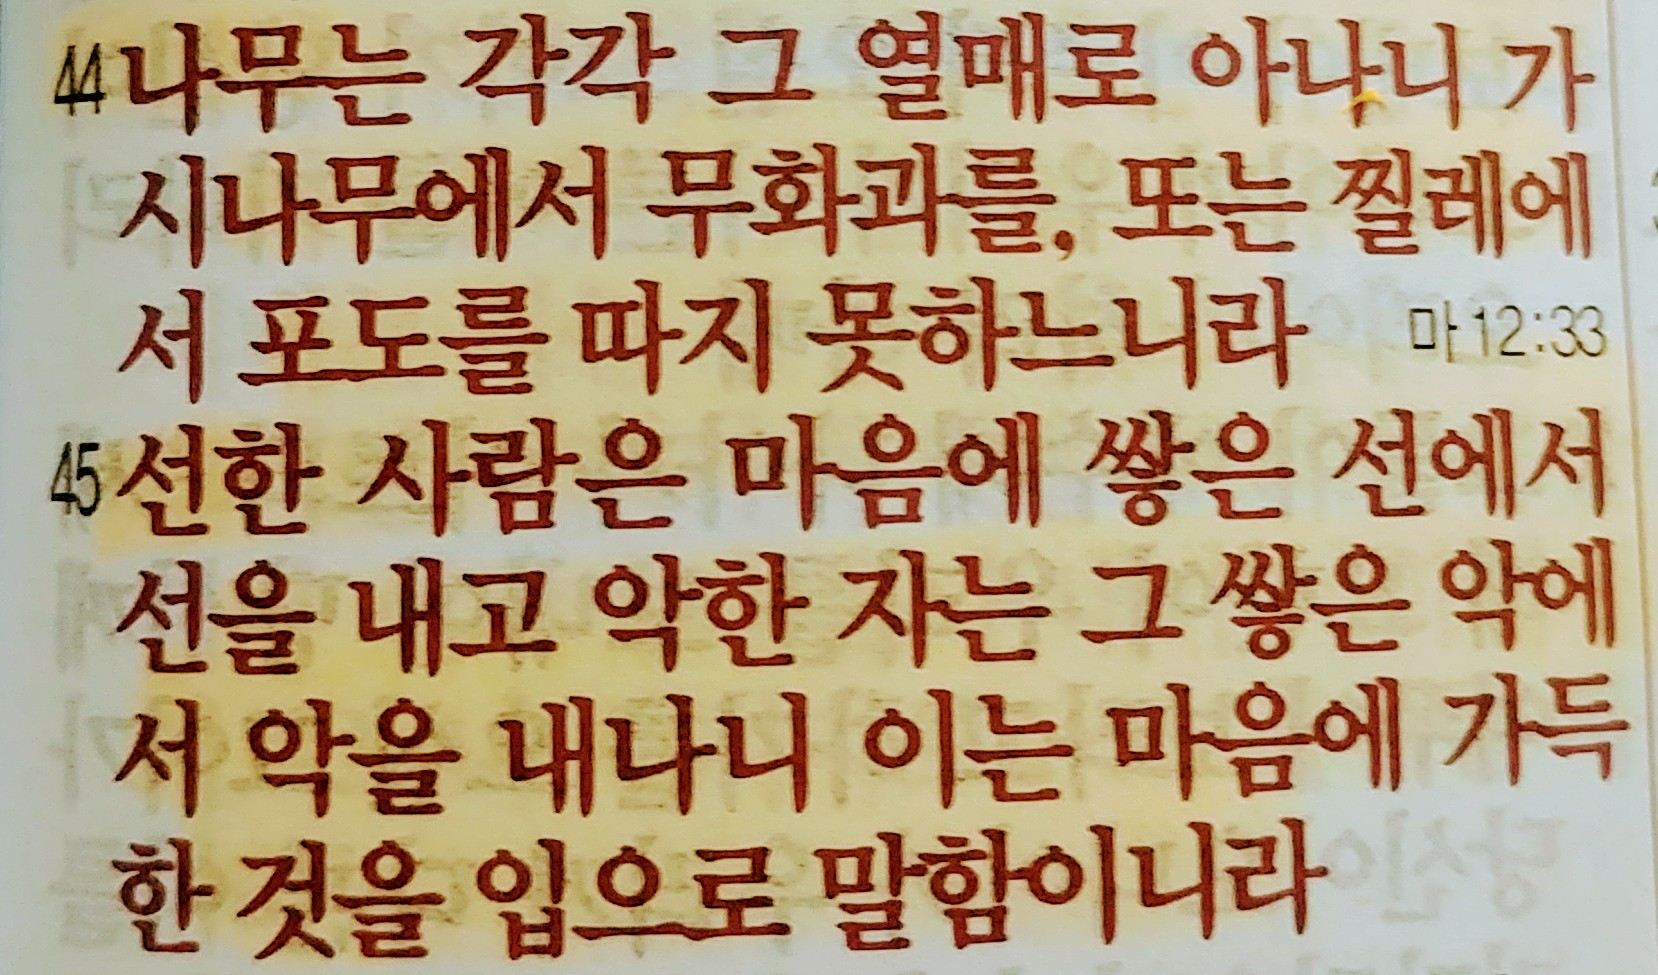 44 나무는 각각 그 열매로 아나니 가
시나무에서 무화과를, 또는 찔레에
서 포도를 따지 못하느니라 마12:33
45 선한 사람은 마음에 쌓은 선에서
선을 내고 악한 자는 그 쌓은 악에
서 악을 내나니 이는 마음에 가득
한 것을 입으로 말함이니라